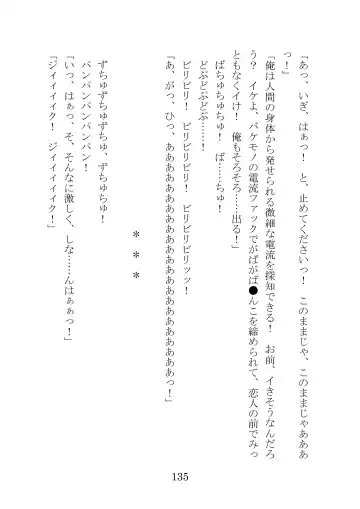 「あっ、いぎ、はぁっ！　と、止めてくださいっ！　このままじゃ、このままじゃあああ
っ！」
「俺は人間の身体から発せられる微細な電流を探知できる！　お前、イきそうなんだろ
う？　イケよ、バケモノの電流ファックでがばがば●んこを締められて、恋人の前でみっ
ともなくイけ！　俺もそろそろ……出る！」
　ばちゅちゅちゅ！　ば……ちゅ！
　どぷどぷどぷ……！
　ビリビリ！　ビリビリビリ！　ビリビリビリッッ！
「あ、がっ、ひっ、ああああああああああああああああああああああああっ！」
＊　＊　＊
　ずちゅずちゅずちゅ、ずちゅちゅ！
　パンパンパンパンパン！
「いっ、はぁっ、そ、そんなに激しく、しな……んはぁぁっ！」
「ジィィィィク！　ジィィィィク！
135